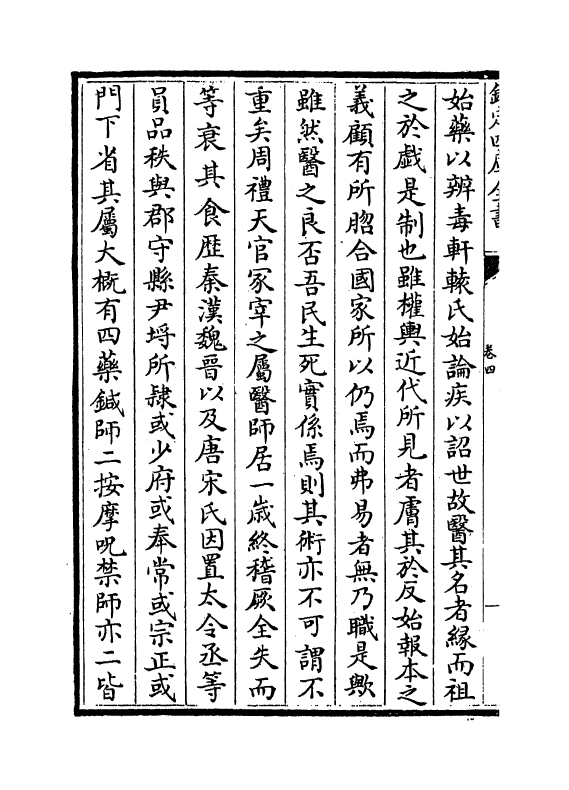 欽定四庫全書
卷四
始藥以辨毒軒轅氏始論疾以詔世故醫其名者緣而祖
之於戯是制也雖權輿近代所見者膚其於反始報本之
義顧有所脗合國家所以仍焉而弗易者無乃職是歟
雖然醫之良否吾民生死實係焉則其術亦不可謂不
重矣周禮天官冢宰之屬醫師居一歳終稽厥全失而
等衰其食歴秦漢魏晉以及唐宋氏因置太令丞等
員品秩與郡守縣尹埒所隸或少府或奉常或宗正或
門下省其屬大概有四藥鍼師二按摩呪禁師亦二皆